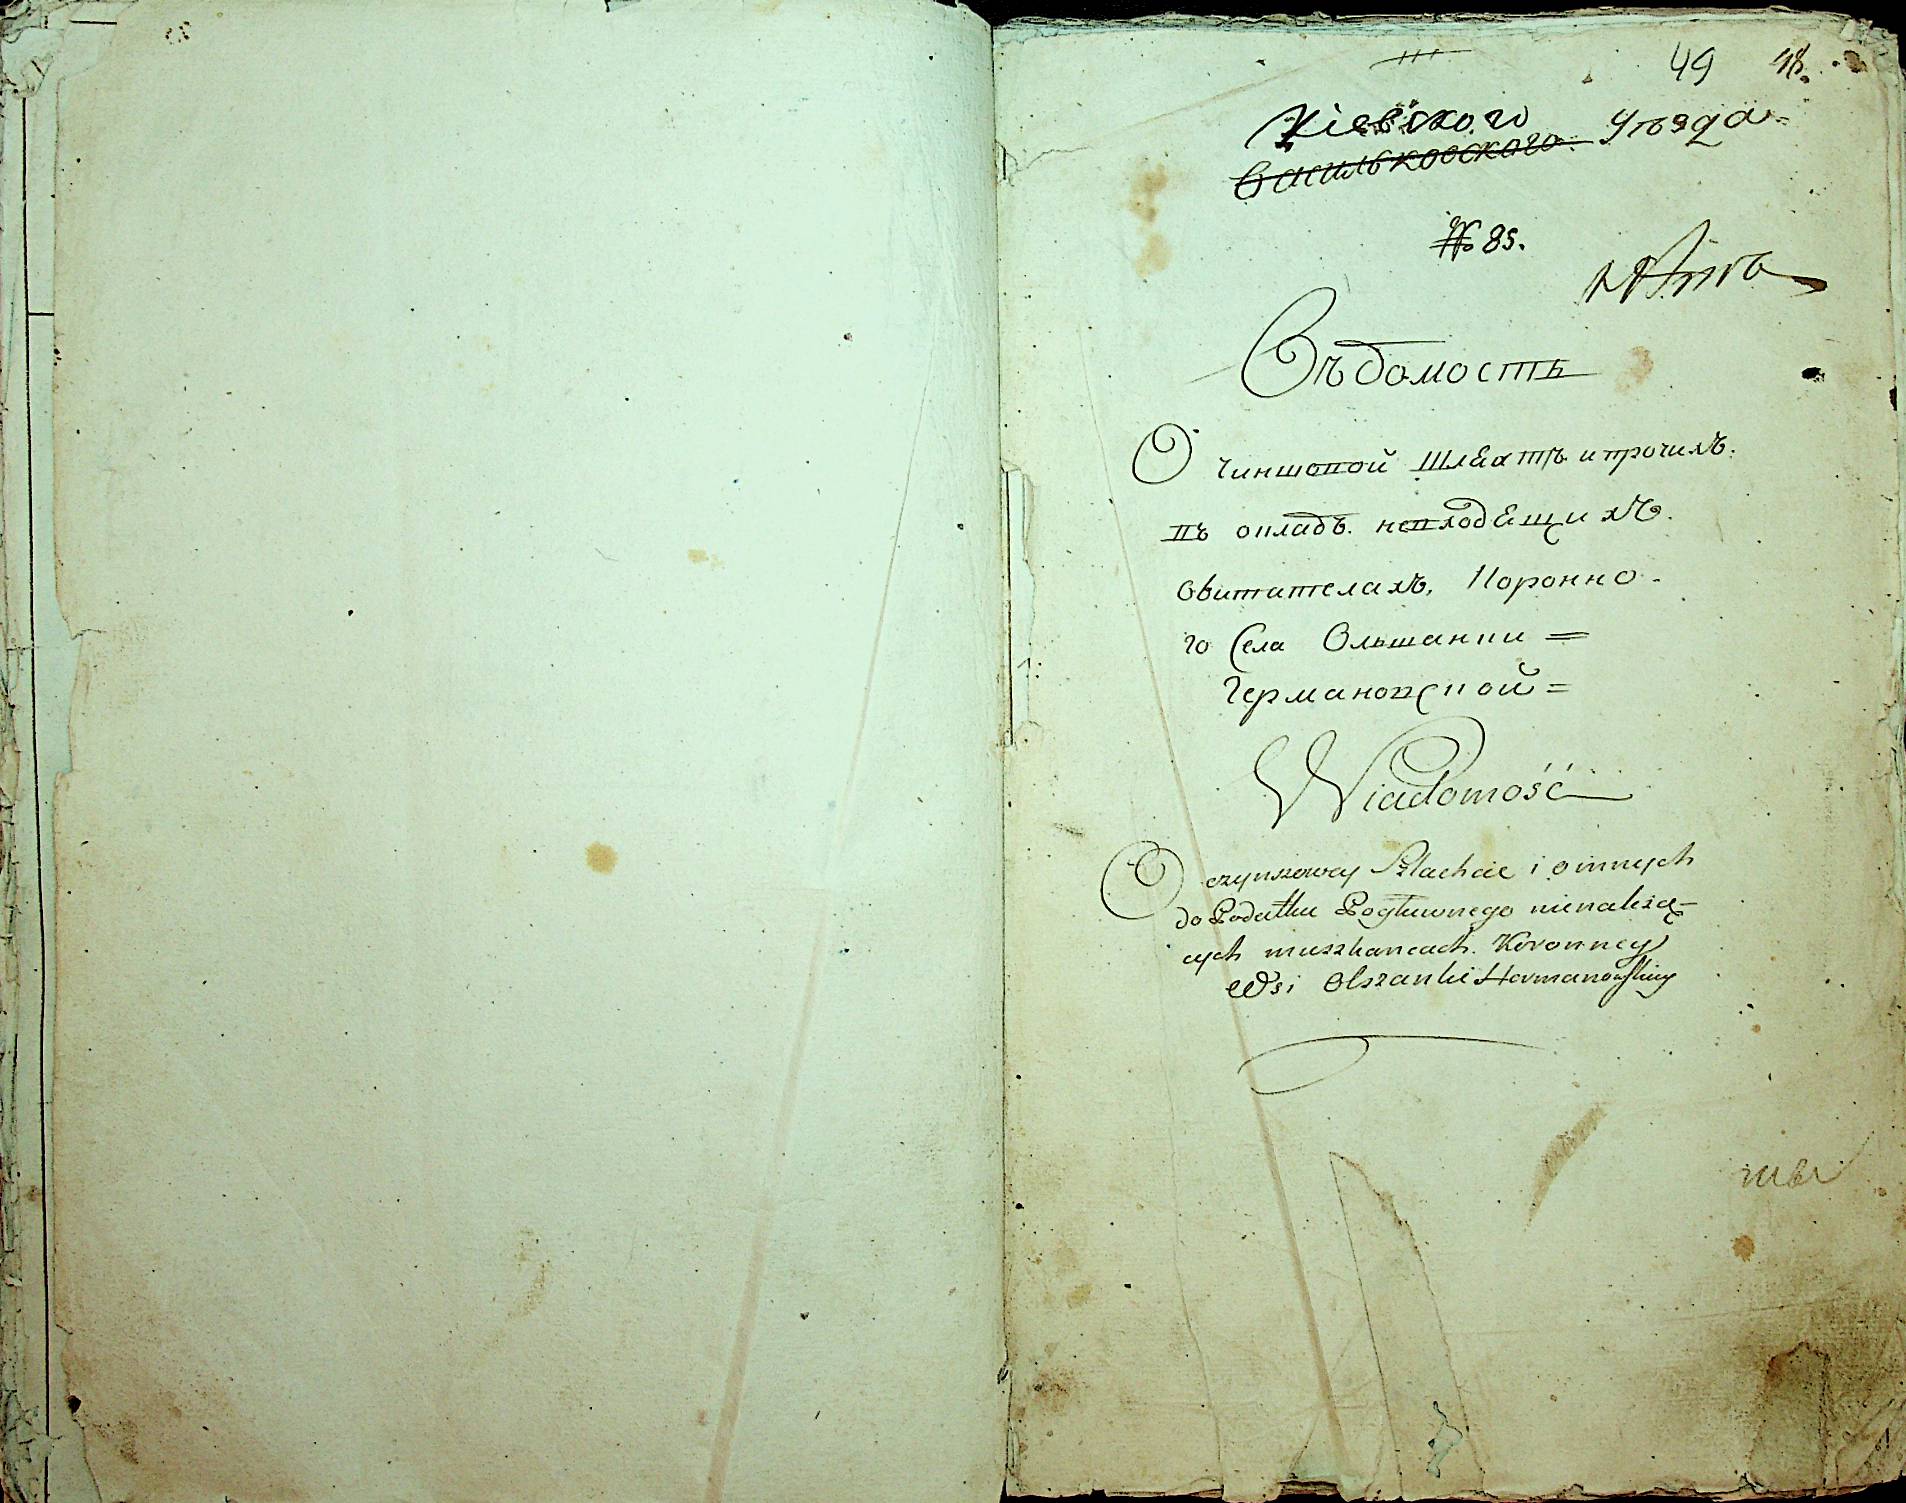 49 48.
Кіевского Уѣзда
Васильковского
№ 85.
Вѣдомость
О чиншовой шляхтѣ и прочихъ
въ окладъ невходящихъ
обитателахъ, Коронно-
го Села Ольшанки =
Германовской =
Wiadomość
O czynszowey Szlachcie i o innych
do Podatku Pogłównego nienależą-
cych mieszkancach Koronney
Wsi Olszanki Hermanowskiey